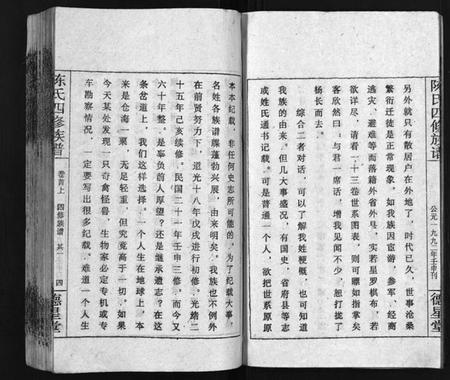 陈氏四修族谱
公元一九九二年壬申刊
德星堂
另外就只有散居户在外地了,时代已久,世事沧桑
繁衍迁徙是正常现象。如我族因宦游,参军,经商
逃灾,避难等而落籍外省外县,实若星罗棋布,若
欲详尽,请看一十三卷世系图表,则可瞭如指掌矣
客欣然曰:与君一席话,增我见闻不少,恕打扰了
杨长而去。
综合二者对话,可以了解我姓梗概,也可知道
我族的由来。但凡大事盛况,有国史,省府县等志
或姓氏通书记载。可是普通一个人,欲把世系原原
本本纪载,非任何史志所可能的。为了纪载大事,
名姓各族谱牒蓬勃兴展,由来明矣。我族也不例外
在前贤努力下,道光十八年戊戌进行初修。光绪二
十五年己亥续修。民国二十一年壬申三修。而今又
六十年整。是辜负前人厚望?还是继承遗志?在这
条岔道上,我们这样选择。一个人生在地球上,本
来是仓海一粟,无足轻重,但究竟高于一切。如果
今天某处发现一只奇禽怪兽,生物家必定专机或专
车勘察情况,一定要写出很多纪载。难道一个人生
陈氏四修族谱
卷首上
四修族谱
其一
四
德星堂